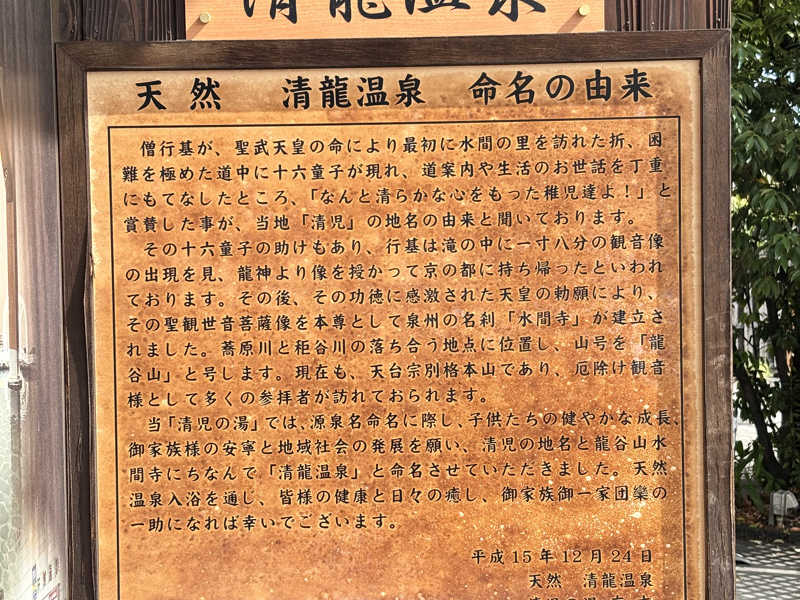 清龍温泉
天然　清龍温泉　命名の由来
僧行基が、聖武天皇の命により最初に水間の里を訪れた折、困
難を極めた道中に十六童子が現れ、道案内や生活のお世話を丁重
にもてなしたところ、「なんと清らかな心をもった稚児達よ！」と
賞賛した事が、当地「清児」の地名の由来と聞いております。
その十六童子の助けもあり、行基は滝の中に一寸八分の観音像
の出現を見、龍神より像を授かって京の都に持ち帰ったといわれ
ております。その後、その功徳に感激された天皇の勅願により、
その聖観世音菩薩像を本尊として泉州の名刹「水間寺」が建立さ
れました。蕎原川と秬谷川の落ち合う地点に位置し、山号を「龍
谷山」と号します。現在も、天台宗別格本山であり、厄除け観音
様として多くの参拝者が訪れておられます。
当「清児の湯」では、源泉名命名に際し、子供たちの健やかな成長、
御家族様の安寧と地域社会の発展を願い、清児の地名と龍谷山水
間寺にちなんで「清龍温泉」と命名させていただきました。天然
温泉入浴を通し、皆様の健康と日々の癒し、御家族御一家団欒の
一助になれば幸いでございます。
平成15年12月24日
天然　清龍温泉